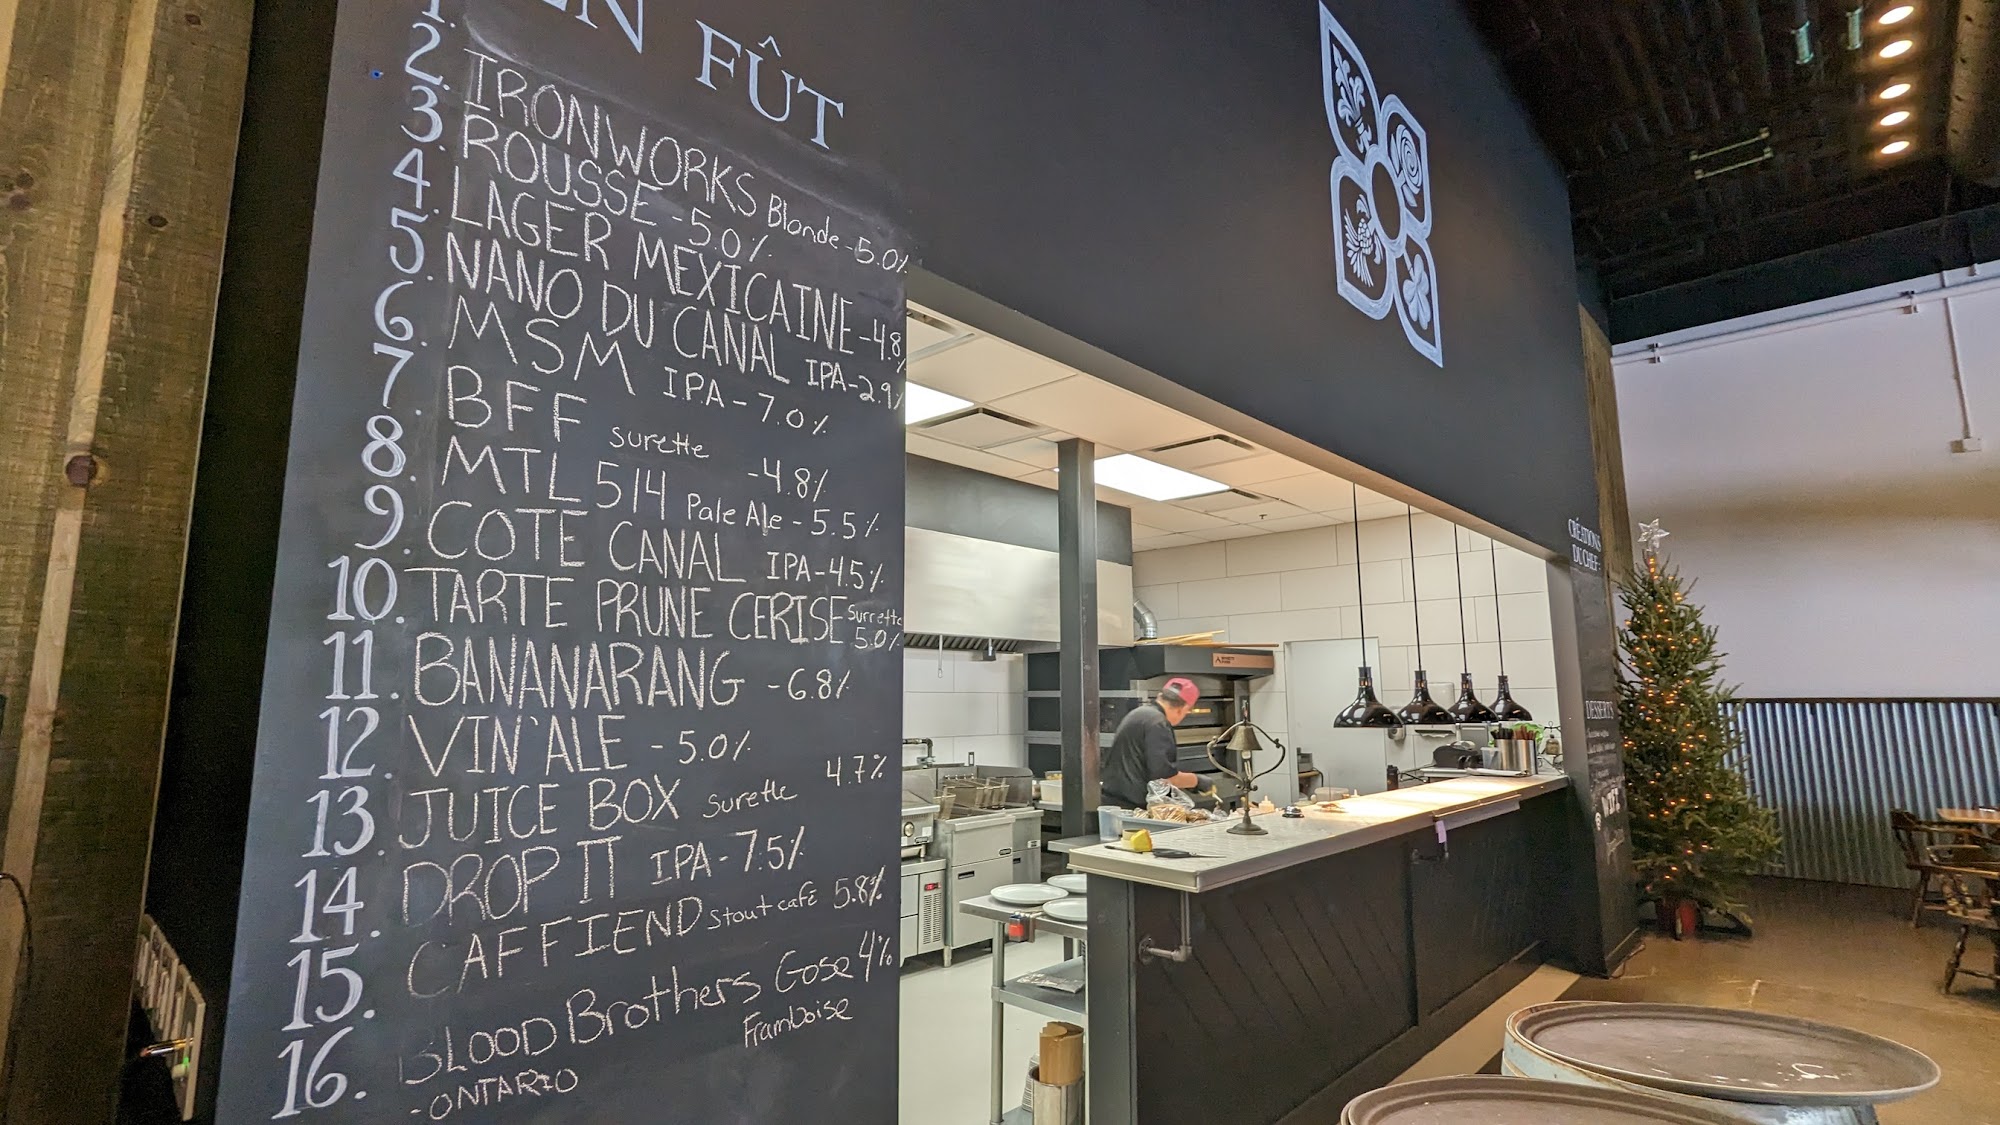 EN FÛT
1.
2. IRONWORKS Blonde - 5.0%
3. ROUSSE - 5.0%
4. LAGER MEXICAINE - 4.8%
5. NANO DU CANAL IPA - 2.9%
6. MSM I.P.A - 7.0%
7. BFF surette - 4.8%
8. MTL 514 Pale Ale - 5.5%
9. COTE CANAL IPA - 4.5%
10. TARTE PRUNE CERISE Surrette 5.0%
11. BANANARANG - 6.8%
12. VIN'ALE - 5.0%
13. JUICE BOX surette 4.7%
14. DROP IT IPA - 7.5%
15. CAFFIEND Stout café 5.8%
16. BLOOD Brothers Gose 4%
- ONTARIO Framboise
CRÉATIONS
DU CHEF:
DESSERTS